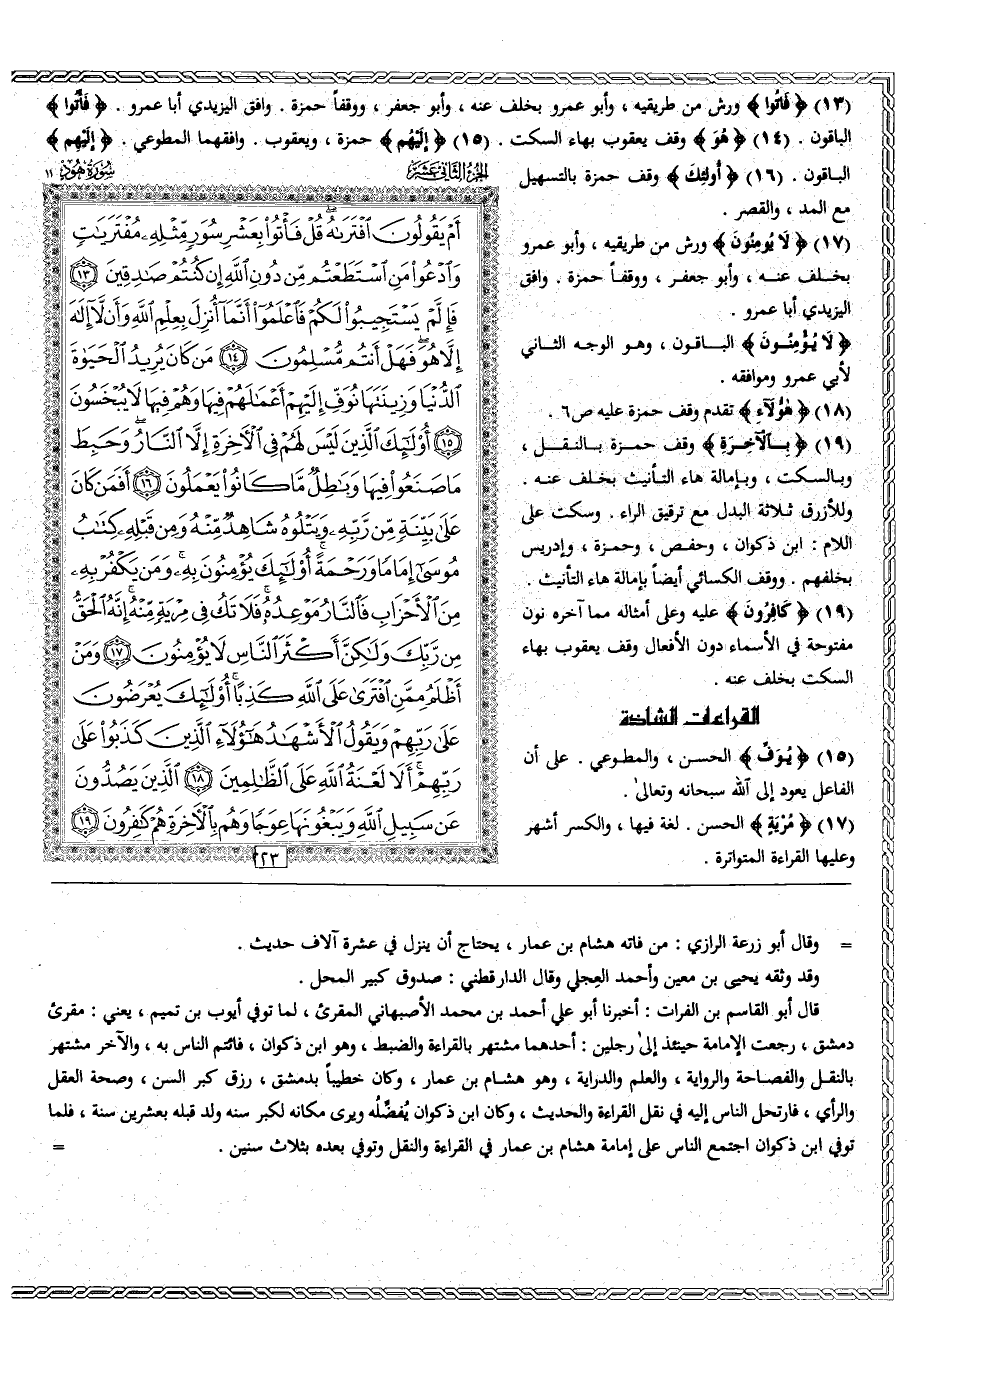 (١٣) ﴿ فَاتُوا ﴾ ورش من طريقيه ، وأبو عمرو بخلف عنه ، وأبو جعفر ، ووقفاً حمزة . وافق اليزيدي أبا عمرو . ﴿ فَأْتُوا ﴾
الباقون . (١٤) ﴿ هُوَ ﴾ وقف يعقوب بهاء السكت . (١٥) ﴿ إِلَيْهُم ﴾ حمزة ، ويعقوب . وافقهما المطوعي . ﴿ إِلَيْهِم ﴾
الباقون . (١٦) ﴿ أُولئِكَ ﴾ وقف حمزة بالتسهيل
مع المد ، والقصر .
(١٧) ﴿ لَا يُومِنُونَ ﴾ ورش من طريقيه ، وأبو عمرو
بخلف عنه ، وأبو جعفر ، ووقفاً حمزة . وافق
اليزيدي أبا عمرو .
﴿ لَا يُؤْمِنُونَ ﴾ الباقون ، وهو الوجه الثاني
لأبي عمرو وموافقه .
(١٨) ﴿ هٰؤُلَآءِ ﴾ تقدم وقف حمزة عليه ص٦ .
(١٩) ﴿ بِالْآخِرَةِ ﴾ وقف حمزة بالنقل ،
وبالسكت ، وبإمالة هاء التأنيث بخلف عنه .
وللأزرق ثلاثة البدل مع ترقيق الراء . وسكت على
اللام : ابن ذكوان ، وحفص ، وحمزة ، وإدريس
بخلفهم . ووقف الكسائي أيضاً بإمالة هاء التأنيث .
(١٩) ﴿ كَافِرُونَ ﴾ عليه وعلى أمثاله مما آخره نون
مفتوحة في الأسماء دون الأفعال وقف يعقوب بهاء
السكت بخلف عنه .
القراءات الشاذة
(١٥) ﴿ يُوَفِّ ﴾ الحسن ، والمطوعي . على أن
الفاعل يعود إلى الله سبحانه وتعالىٰ .
(١٧) ﴿ مُرْيَةٍ ﴾ الحسن . لغة فيها ، والكسر أشهر
وعليها القراءة المتواترة .
الجزء الثاني عشر
سورة هود ١١
أَمْ يَقُولُونَ ٱفْتَرَىٰهُ قُلْ فَأْتُوا۟ بِعَشْرِ سُوَرٍ مِّثْلِهِۦ مُفْتَرَيَٰتٍ
وَٱدْعُوا۟ مَنِ ٱسْتَطَعْتُم مِّن دُونِ ٱللَّهِ إِن كُنتُمْ صَٰدِقِينَ ١٣
فَإِلَّمْ يَسْتَجِيبُوا۟ لَكُمْ فَٱعْلَمُوٓا۟ أَنَّمَآ أُنزِلَ بِعِلْمِ ٱللَّهِ وَأَن لَّآ إِلَٰهَ
إِلَّا هُوَ فَهَلْ أَنتُم مُّسْلِمُونَ ١٤ مَن كَانَ يُرِيدُ ٱلْحَيَوٰةَ
ٱلدُّنْيَا وَزِينَتَهَا نُوَفِّ إِلَيْهِمْ أَعْمَٰلَهُمْ فِيهَا وَهُمْ فِيهَا لَا يُبْخَسُونَ
١٥ أُو۟لَٰٓئِكَ ٱلَّذِينَ لَيْسَ لَهُمْ فِى ٱلْءَاخِرَةِ إِلَّا ٱلنَّارُ وَحَبِطَ
مَا صَنَعُوا۟ فِيهَا وَبَٰطِلٌ مَّا كَانُوا۟ يَعْمَلُونَ ١٦ أَفَمَن كَانَ
عَلَىٰ بَيِّنَةٍ مِّن رَّبِّهِۦ وَيَتْلُوهُ شَاهِدٌ مِّنْهُ وَمِن قَبْلِهِۦ كِتَٰبُ
مُوسَىٰٓ إِمَامًا وَرَحْمَةً أُو۟لَٰٓئِكَ يُؤْمِنُونَ بِهِۦ وَمَن يَكْفُرْ بِهِۦ
مِنَ ٱلْأَحْزَابِ فَٱلنَّارُ مَوْعِدُهُۥ فَلَا تَكُ فِى مِرْيَةٍ مِّنْهُ إِنَّهُ ٱلْحَقُّ
مِن رَّبِّكَ وَلَٰكِنَّ أَكْثَرَ ٱلنَّاسِ لَا يُؤْمِنُونَ ١٧ وَمَنْ
أَظْلَمُ مِمَّنِ ٱفْتَرَىٰ عَلَى ٱللَّهِ كَذِبًا أُو۟لَٰٓئِكَ يُعْرَضُونَ
عَلَىٰ رَبِّهِمْ وَيَقُولُ ٱلْأَشْهَٰدُ هَٰٓؤُلَآءِ ٱلَّذِينَ كَذَبُوا۟ عَلَىٰ
رَبِّهِمْ أَلَا لَعْنَةُ ٱللَّهِ عَلَى ٱلظَّٰلِمِينَ ١٨ ٱلَّذِينَ يَصُدُّونَ
عَن سَبِيلِ ٱللَّهِ وَيَبْغُونَهَا عِوَجًا وَهُم بِٱلْءَاخِرَةِ هُمْ كَٰفِرُونَ ١٩
٢٢٣
= وقال أبو زرعة الرازي : من فاته هشام بن عمار ، يحتاج أن ينزل في عشرة آلاف حديث .
وقد وثقه يحيى بن معين وأحمد العِجلي وقال الدارقطني : صدوق كبير المحل .
قال أبو القاسم بن الفرات : أخبرنا أبو علي أحمد بن محمد الأصبهاني المقرئ ، لما توفي أيوب بن تميم ، يعني : مقرئ
دمشق ، رجعت الإمامة حينئذ إلىٰ رجلين : أحدهما مشتهر بالقراءة والضبط ، وهو ابن ذكوان ، فائتم الناس به ، والآخر مشتهر
بالنقل والفصاحة والرواية ، والعلم والدراية ، وهو هشام بن عمار ، وكان خطيباً بدمشق ، رزق كبر السن ، وصحة العقل
والرأي ، فارتحل الناس إليه في نقل القراءة والحديث ، وكان ابن ذكوان يُفضِّلُه ويرى مكانه لكبر سنه ولد قبله بعشرين سنة ، فلما
توفي ابن ذكوان اجتمع الناس على إمامة هشام بن عمار في القراءة والنقل وتوفي بعده بثلاث سنين . =